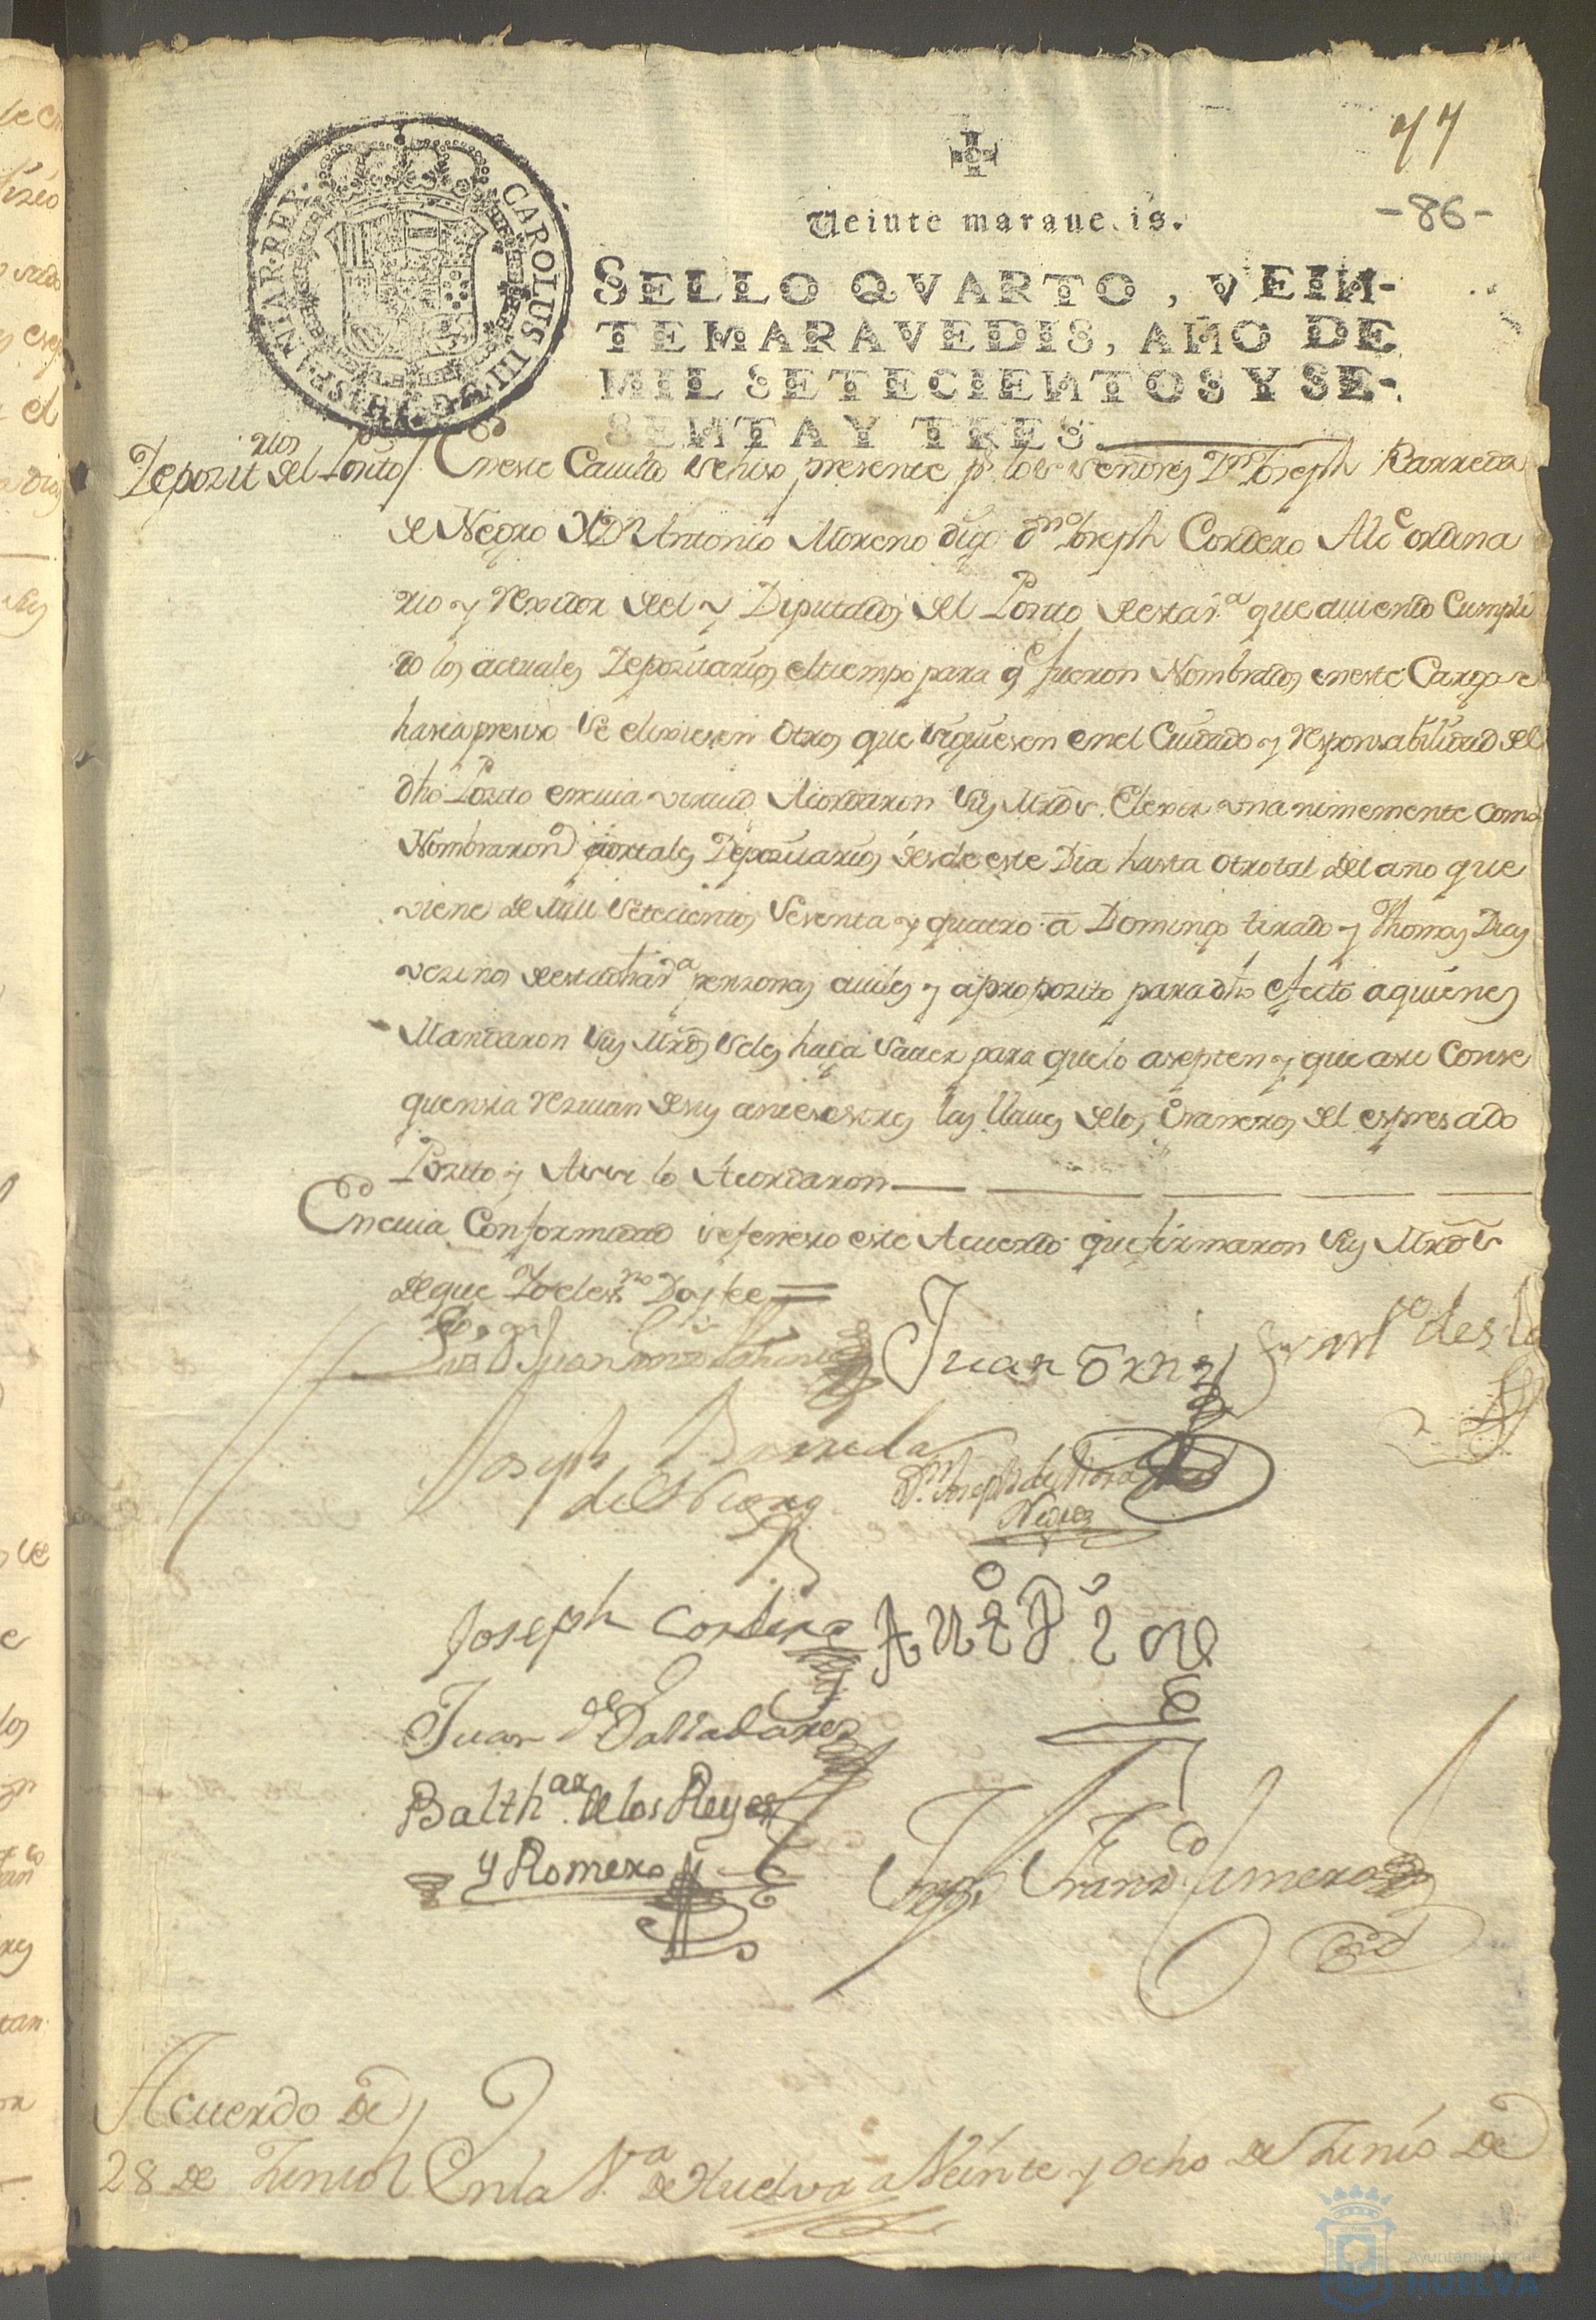 77
-86-
CAROLUS III D G HISPANIAR REX
Veinte marauedis.
SELLO QVARTO, VEIN-
TE MARAVEDIS, AÑO DE
MIL SETECIENTOS Y SE-
SENTA Y TRES.
Depozitrios del Pozito / En este Cauildo se hiso presente pr los señores Dn Joseph Barreda
de Negro Dn Antonio Moreno digo dn Joseph Cordero Alce ordina
rio y rexidor del y Diputados del Pozito de esta va que auiendo Cumpli
do los actuales Depozitarios el tiempo para qe fueron Nombrados en este Cargo se
hasia presiso se elixiesen otros que siguiesen en el Cuidado y responsabilidad del
dho Pozito en cuia virtud Acordaron sus Mrds Elexir unanimemente como
Nombraron por tales Depozitarios desde este Dia hasta otro tal del año que
viene de mill setecientos sesenta y quatro a Domingo tirado y Thomas Dias
vezinos de esta dha va perzonas auiles y a propozito para dho efecto a quienes
Mandaron sus Mrds se les haga sauer para que lo asepten y que a su Conse
quensia resiuan de sus antesesores las llaues de los Graneros del espresado
Pozito y Assi lo Acordaron
En cuia Conformidad se fenesio este Acuerdo que firmaron sus Mrds
de que Yo el essno Doy fee =
Juan
Joseph Barreda
de Negro
Dn Joseph de Mora
Negro
Joseph Cordero
Juan de Valladares
Balthar de los Reyes
y Romero
Franco Jimenez
Acuerdo de
28 de Junio / En la Va de Huelva a Veinte y ocho de Junio de
Ayuntamiento de
HUELVA